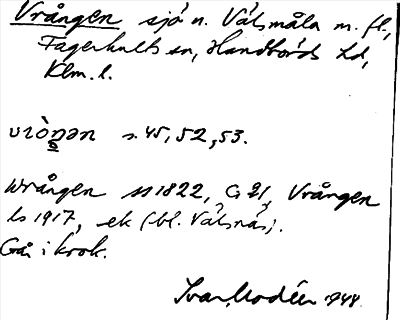 Vrången sjö n. Välsmåla m. fl.,
Fagerhults sn, Handbörds hd,
Klm. l.
s. 45, 52, 53.
Wrången 1822, Vrången
ls 1917, ek (bl. Välsnäs).
Gå i krok.
Ivar Modéer 1948.